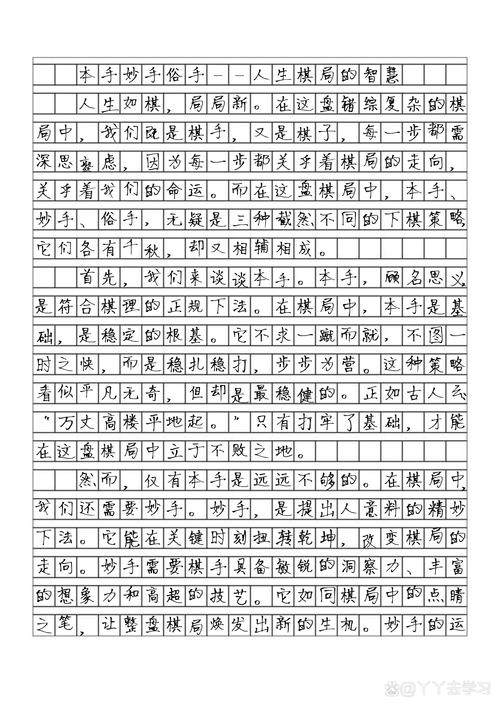 本手妙手俗手--人生棋局的智慧
人生如棋，局局新。在这盘错综复杂的棋
局中，我们既是棋手，又是棋子，每一步都需
深思熟虑，因为每一步都关乎着棋局的走向，
关乎着我们的命运。而在这盘棋局中，本手、
妙手、俗手，无疑是三种截然不同的下棋策略
它们各有千秋，却又相辅相成。
首先，我们来谈谈本手。本手，顾名思义
是符合棋理的正规下法。在棋局中，本手是基
础，是稳定的根基。它不求一蹴而就，不图一
时之快，而是稳扎稳打，步步为营。这种策略
看似平凡无奇，但却是最稳健的。正如古人云
“万丈高楼平地起。”只有打牢了基础，才能
在这盘棋局中立于不败之地。
然而，仅有本手是远远不够的。在棋局中，
我们还需要妙手。妙手，是提出人意料的精妙
下法。它能在关键时刻扭转乾坤，改变棋局的
走向。妙手需要棋手具备敏锐的洞察力、丰富
的想象力和高超的技艺。它如同棋局中的点睛
之笔，让整盘棋局焕发出新的生机。妙手的运
@丫丫去学习